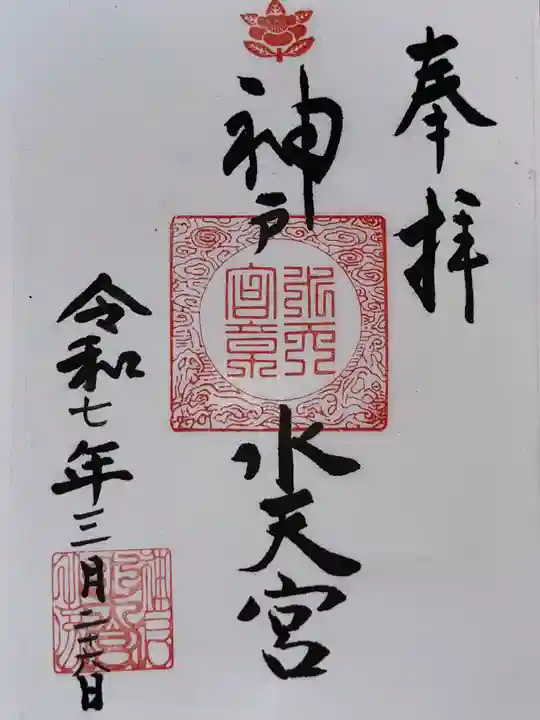 奉拝
神戸
水天宮
水天
宮章
令和七年三月二十六日